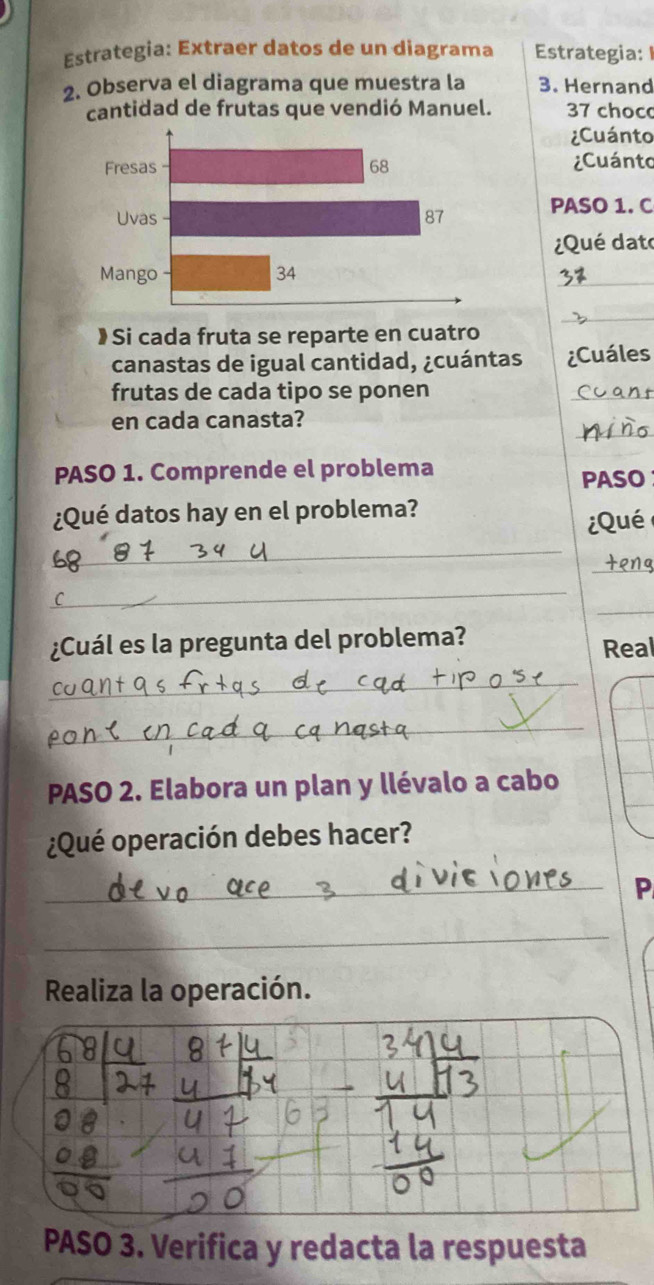 Estrategia: Extraer datos de un diagrama
2. Observa el diagrama que muestra la
cantidad de frutas que vendió Manuel.
Fresas 68
Uvas 87
Mango 34
Si cada fruta se reparte en cuatro
canastas de igual cantidad, ¿cuántas
frutas de cada tipo se ponen
en cada canasta?
PASO 1. Comprende el problema
¿Qué datos hay en el problema?
68 87 34 4
c
¿Cuál es la pregunta del problema?
cuantas frtas de cad tipo se
pone en cada canasta
PASO 2. Elabora un plan y llévalo a cabo
¿Qué operación debes hacer?
devo ace 3 diviciones
Realiza la operación.
68 4 87 4 34 4
8 27 4 4 13
08 47 63 14
08 47 14
00 00 00
PASO 3. Verifica y redacta la respuesta
Estrategia:
3. Hernand
37 choco
¿Cuánto
¿Cuánto
PASO 1. C
¿Qué dato
37
3
¿Cuáles
cuant
niño
PASO
¿Qué
teng
Real
P